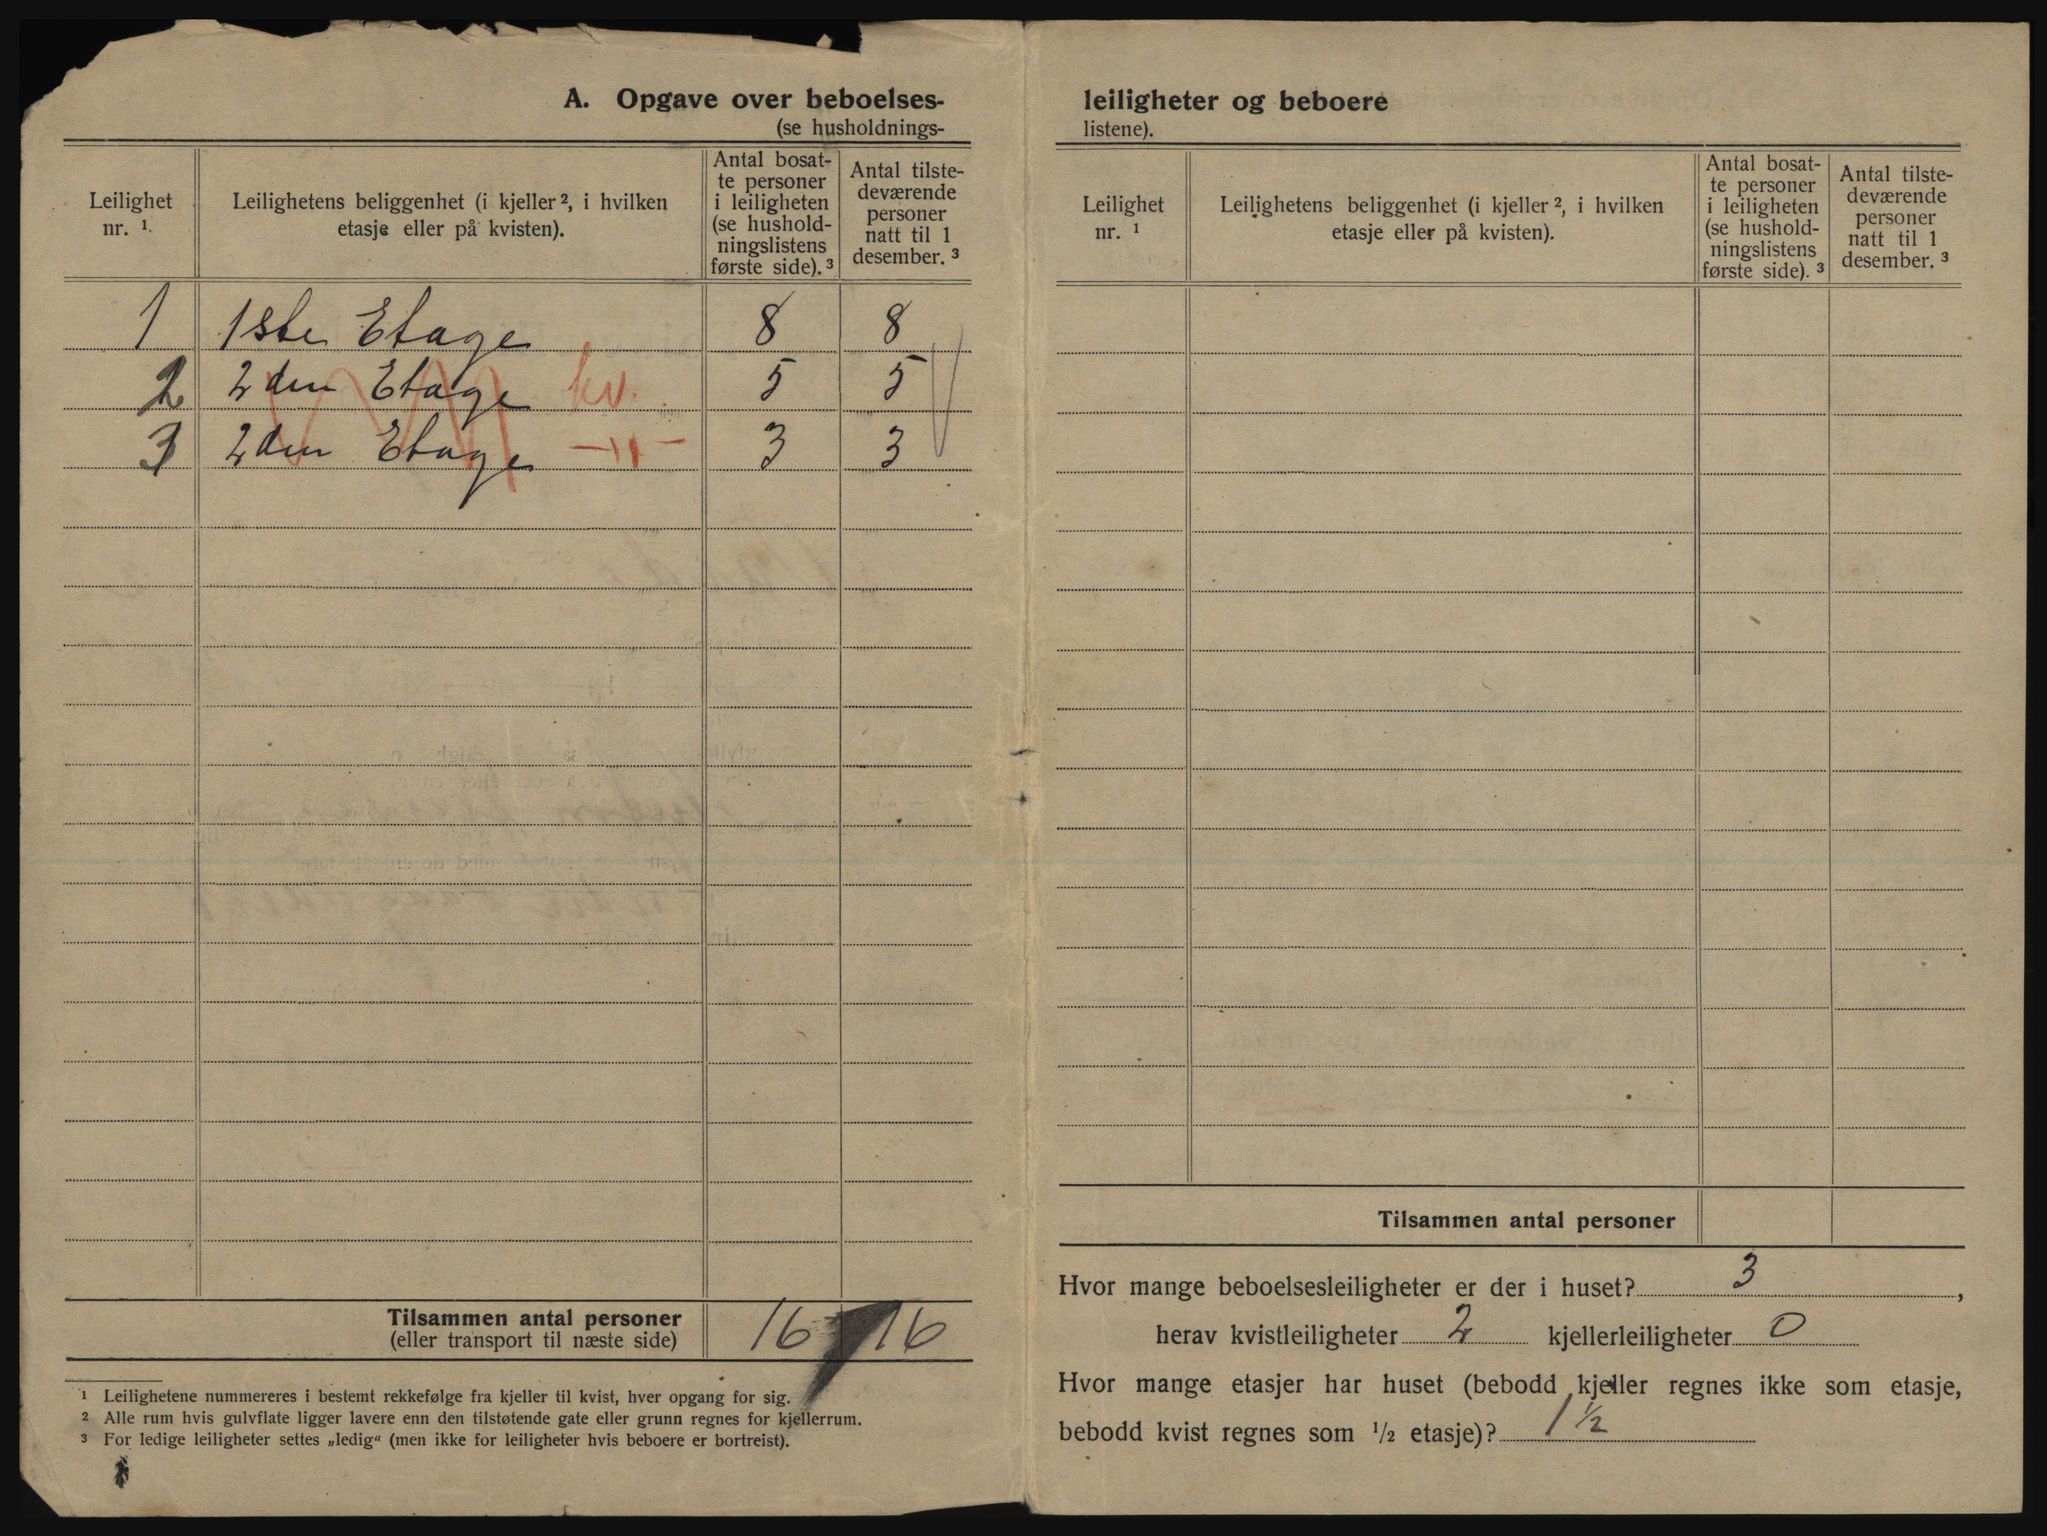 A. Opgave over beboelses-
(se husholdnings-
Leilighet
nr. ¹.
Leilighetens beliggenhet (i kjeller ², i hvilken
etasje eller på kvisten).
Antal bosat-
te personer
i leiligheten
(se hushold-
ningslistens
første side). ³
Antal tilste-
deværende
personer
natt til 1
desember. ³
1 1ste Etage 8 8
2 2den Etage kv. 5 5
3 2den Etage —"— 3 3
Tilsammen antal personer
(eller transport til næste side)
16 16
¹ Leilighetene nummereres i bestemt rekkefølge fra kjeller til kvist, hver opgang for sig.
² Alle rum hvis gulvflate ligger lavere enn den tilstøtende gate eller grunn regnes for kjellerrum.
³ For ledige leiligheter settes „ledig“ (men ikke for leiligheter hvis beboere er bortreist).
leiligheter og beboere
listene).
Leilighet
nr. ¹
Leilighetens beliggenhet (i kjeller ², i hvilken
etasje eller på kvisten).
Antal bosat-
te personer
i leiligheten
(se hushold-
ningslistens
første side). ³
Antal tilste-
deværende
personer
natt til 1
desember. ³
Tilsammen antal personer
Hvor mange beboelsesleiligheter er der i huset? 3,
herav kvistleiligheter 2 kjellerleiligheter 0
Hvor mange etasjer har huset (bebodd kjeller regnes ikke som etasje,
bebodd kvist regnes som ½ etasje)? 1 ½